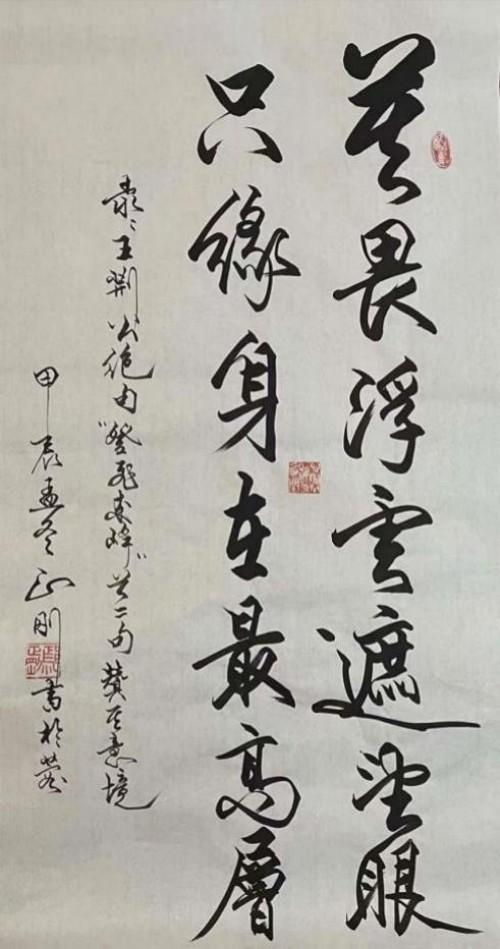 莫畏浮云遮望眼
只緣身在最高層
王荆公絶句"登飛來峰"二句贊其意境
甲辰孟冬正刚書於